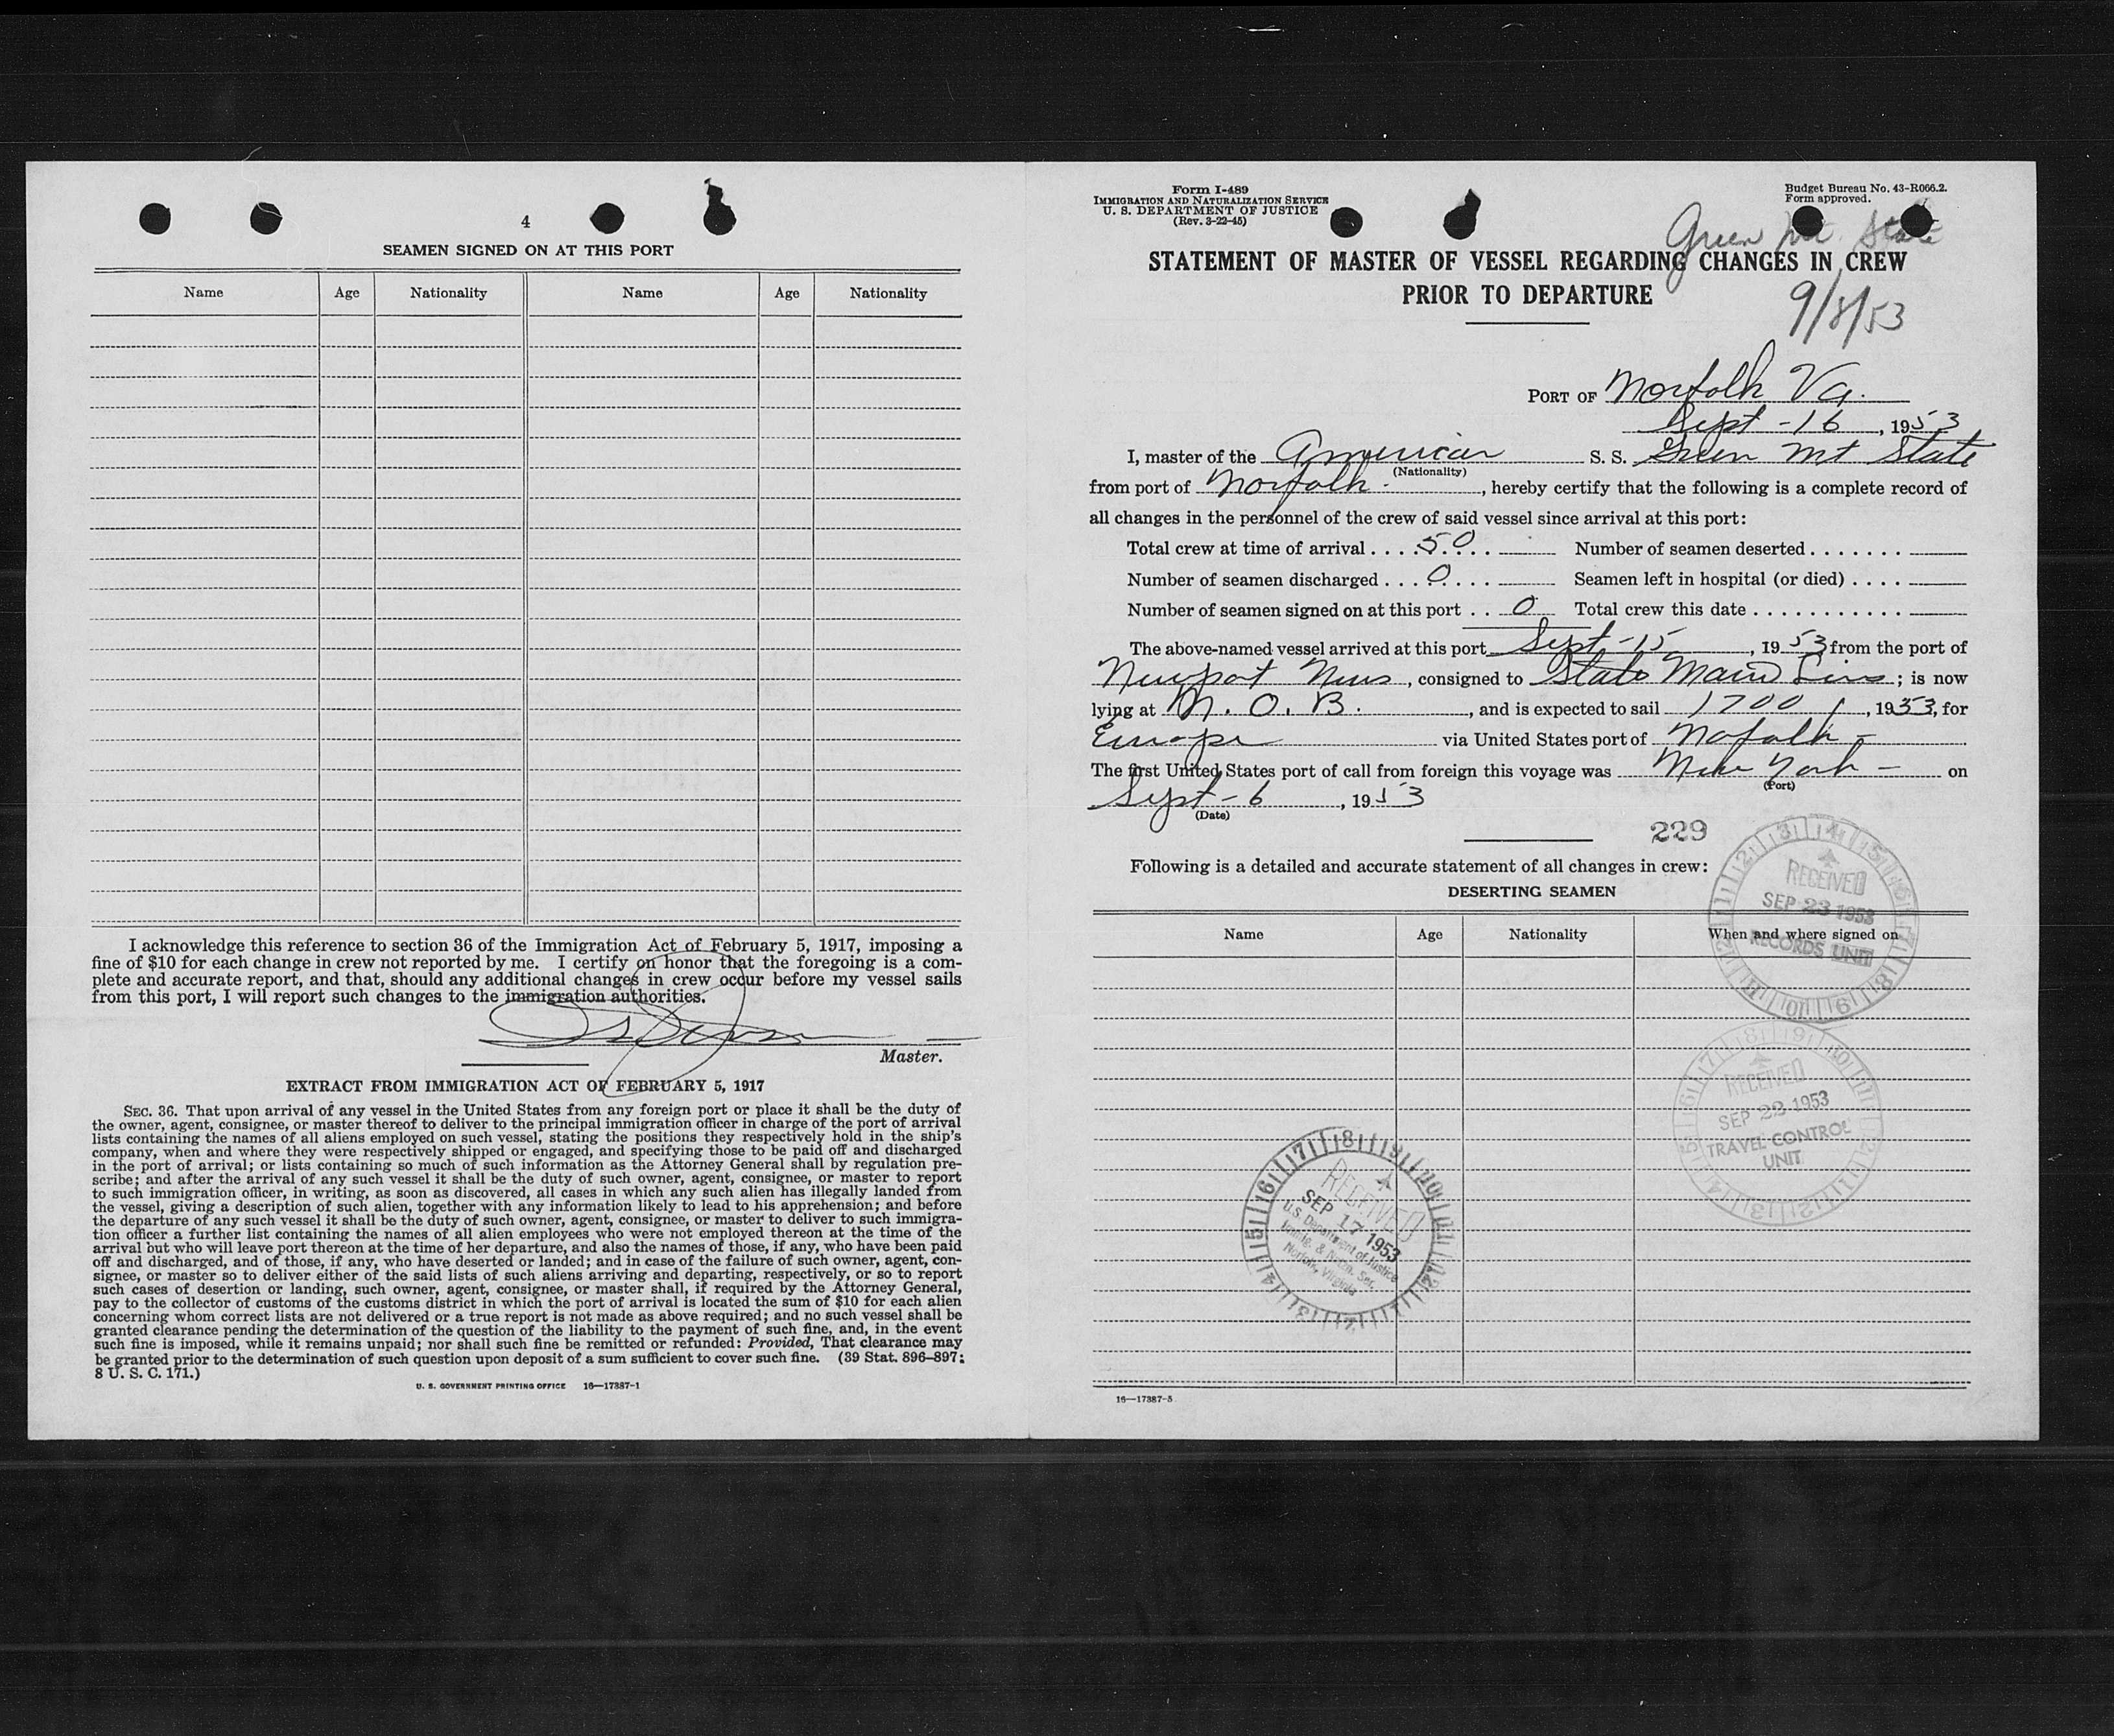 4
SEAMEN SIGNED ON AT THIS PORT
Name Age Nationality Name Age Nationality
I acknowledge this reference to section 36 of the Immigration Act of February 5, 1917, imposing a
fine of $10 for each change in crew not reported by me. I certify on honor that the foregoing is a com-
plete and accurate report, and that, should any additional changes in crew occur before my vessel sails
from this port, I will report such changes to the immigration authorities.
Master.
EXTRACT FROM IMMIGRATION ACT OF FEBRUARY 5, 1917
SEC. 36. That upon arrival of any vessel in the United States from any foreign port or place it shall be the duty of
the owner, agent, consignee, or master thereof to deliver to the principal immigration officer in charge of the port of arrival
lists containing the names of all aliens employed on such vessel, stating the positions they respectively hold in the ship's
company, when and where they were respectively shipped or engaged, and specifying those to be paid off and discharged
in the port of arrival; or lists containing so much of such information as the Attorney General shall by regulation pre-
scribe; and after the arrival of any such vessel it shall be the duty of such owner, agent, consignee, or master to report
to such immigration officer, in writing, as soon as discovered, all cases in which any such alien has illegally landed from
the vessel, giving a description of such alien, together with any information likely to lead to his apprehension; and before
the departure of any such vessel it shall be the duty of such owner, agent, consignee, or master to deliver to such immigra-
tion officer a further list containing the names of all alien employees who were not employed thereon at the time of the
arrival but who will leave port thereon at the time of her departure, and also the names of those, if any, who have been paid
off and discharged, and of those, if any, who have deserted or landed; and in case of the failure of such owner, agent, con-
signee, or master so to deliver either of the said lists of such aliens arriving and departing, respectively, or so to report
such cases of desertion or landing, such owner, agent, consignee, or master shall, if required by the Attorney General,
pay to the collector of customs of the customs district in which the port of arrival is located the sum of $10 for each alien
concerning whom correct lists are not delivered or a true report is not made as above required; and no such vessel shall be
granted clearance pending the determination of the question of the liability to the payment of such fine, and, in the event
such fine is imposed, while it remains unpaid; nor shall such fine be remitted or refunded: Provided, That clearance may
be granted prior to the determination of such question upon deposit of a sum sufficient to cover such fine. (39 Stat. 896–897;
8 U. S. C. 171.)
U. S. GOVERNMENT PRINTING OFFICE 16—17387-1
Form I-489
IMMIGRATION AND NATURALIZATION SERVICE
U. S. DEPARTMENT OF JUSTICE
(Rev. 3-22-45)
Budget Bureau No. 43-R066.2.
Form approved.
Green Mt. State
STATEMENT OF MASTER OF VESSEL REGARDING CHANGES IN CREW
PRIOR TO DEPARTURE
9/8/53
PORT OF Norfolk Va.
Sept - 16, 1953
I, master of the American S. S. Green Mt State
(Nationality)
from port of Norfolk, hereby certify that the following is a complete record of
all changes in the personnel of the crew of said vessel since arrival at this port:
Total crew at time of arrival . . . . 50 Number of seamen deserted . . . . . . .
Number of seamen discharged . . . 0 Seamen left in hospital (or died) . . . .
Number of seamen signed on at this port . . 0 Total crew this date . . . . . . . . . . .
The above-named vessel arrived at this port Sept - 15, 1953 from the port of
Newport News, consigned to State Marine Lines; is now
lying at N. O. B., and is expected to sail 1700, 1953, for
Europe via United States port of Norfolk -
The first United States port of call from foreign this voyage was New York - on
(Port)
Sept - 6, 1953
(Date)
229
Following is a detailed and accurate statement of all changes in crew:
DESERTING SEAMEN
Name Age Nationality When and where signed on
RECEIVED
SEP 23 1953
RECORDS UNIT
RECEIVED
SEP 22 1953
TRAVEL CONTROL
UNIT
RECEIVED
SEP 17 1953
U.S. Department of Justice
Immig. & Natn. Ser.
Norfolk, Virginia
16—17387-5